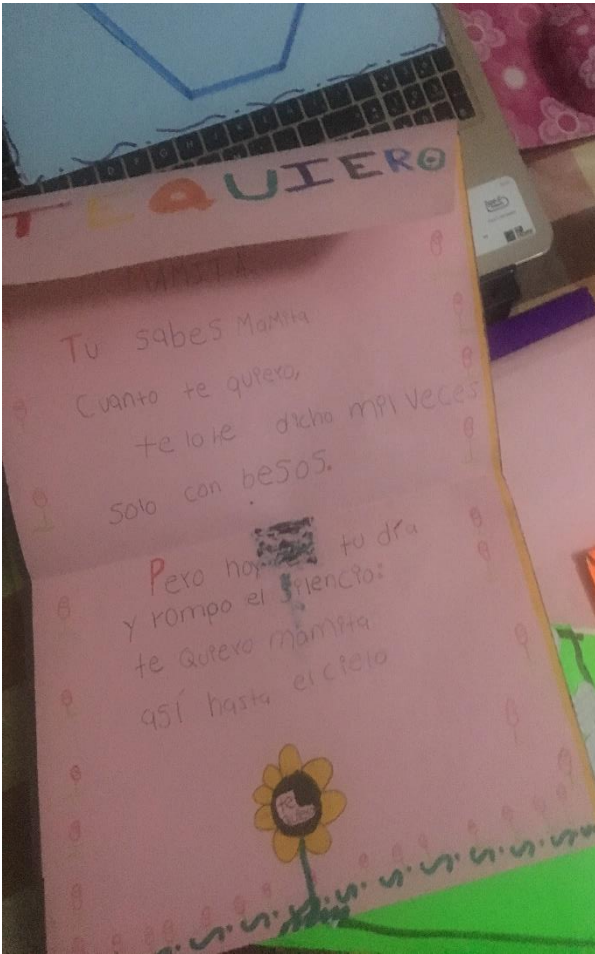 TE QUIERO
Tu sabes Mamita
Cuanto te quiero,
te lo he dicho mil veces
solo con besos.
Pero hoy tu día
y rompo el silencio:
te quiero mamita
así hasta el cielo
te